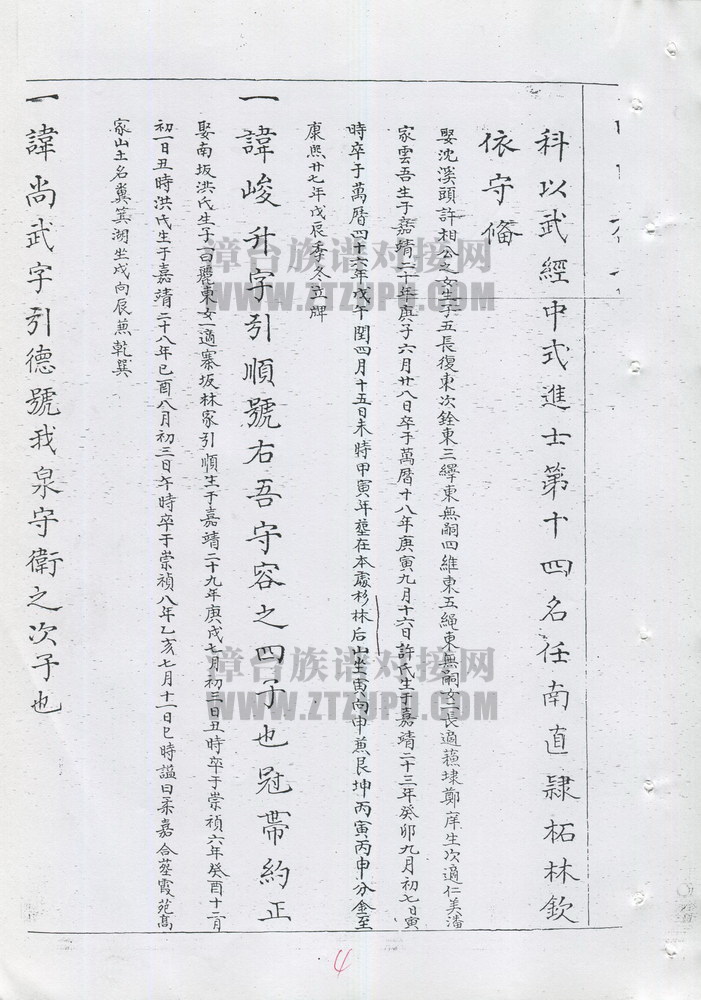 科以武經中式進士第十四名任南直隸柘林欽
依守備
娶沈溪頭許相公之女生子五長復東次銓東三繹東無嗣四維東五繩東無嗣女二長適蘓埭鄭庠生次適仁美潘
家雲吾生于嘉靖二十年庚子六月廿八日卒于萬曆十八年庚寅九月十六日許氏生于嘉靖二十三年癸卯九月初七日寅
時卒于萬曆四十六年戊午閏四月十五日未時甲寅年塟在本處杉林后山坐寅向申蒹艮坤丙寅丙申分金至
康熙廿七年戊辰季冬立牌
一諱峻升字引順號右吾守容之四子也冠帶約正
娶南坂洪氏生子一曰麗東女一適寨坂林家引順生于嘉靖二十九年庚戌七月初三日丑時卒于崇禎六年癸酉十二月
初一日丑時洪氏生于嘉靖二十八年己酉八月初三日午時卒于崇禎八年乙亥七月十二日巳時謚曰柔嘉合塟霞苑高
家山土名糞箕湖坐戌向辰蒹乾巽
一諱尚武字引德號我泉守衛之次子也
4
漳台族谱对接网
WWW.ZTZUPU.COM
漳台族谱对接网
WWW.ZTZUPU.COM